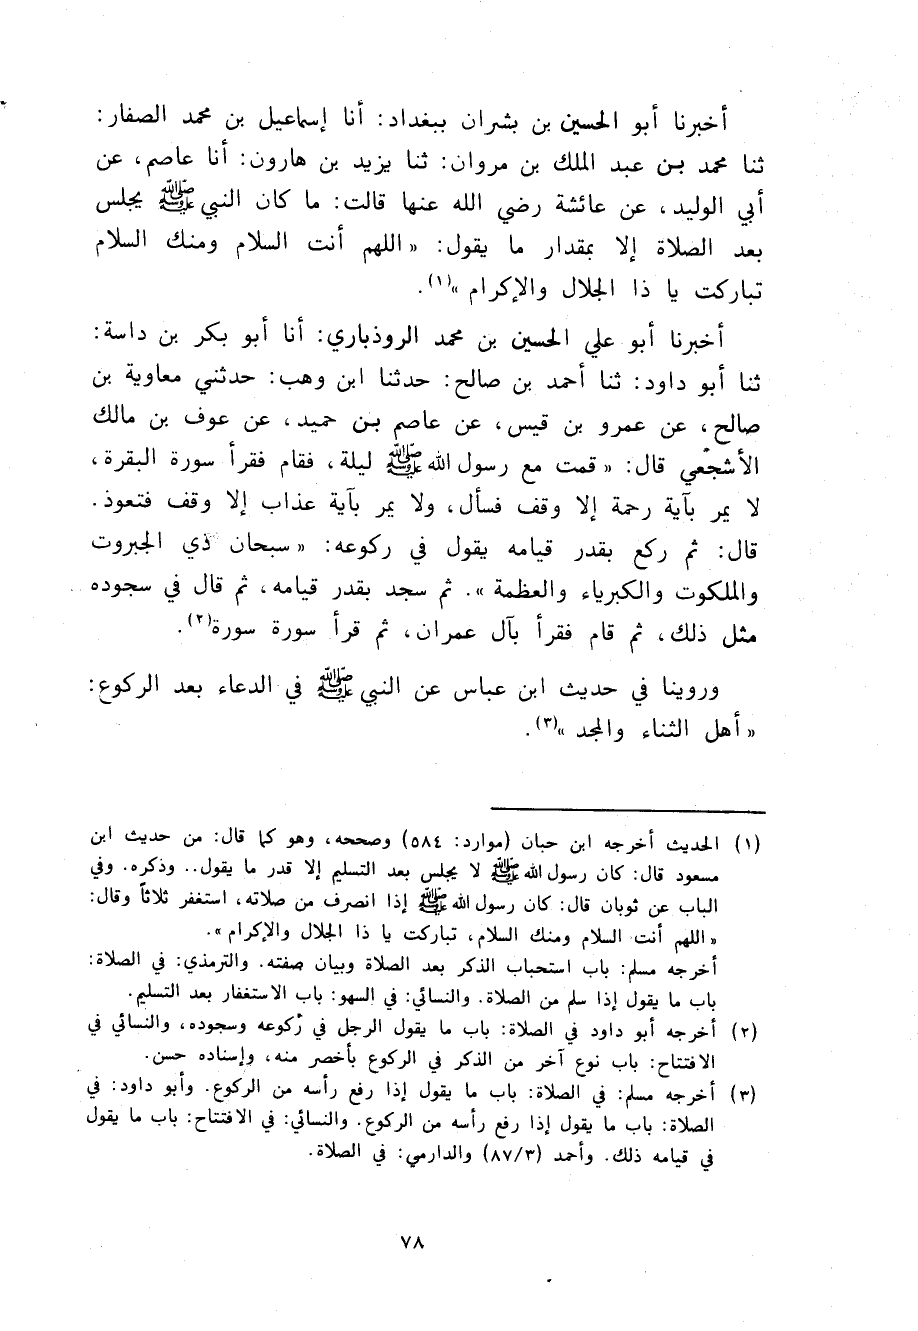 أخبرنا أبو الحسين بن بشران ببغداد: أنا إسماعيل بن محمد الصفار:
ثنا محمد بن عبد الملك بن مروان: ثنا يزيد بن هارون: أنا عاصم، عن
أبي الوليد، عن عائشة رضي الله عنها قالت: ما كان النبي ﷺ يجلس
بعد الصلاة إلا بمقدار ما يقول: « اللهم أنت السلام ومنك السلام
تباركت يا ذا الجلال والإكرام »(١).
أخبرنا أبو علي الحسين بن محمد الروذباري: أنا أبو بكر بن داسة:
ثنا أبو داود: ثنا أحمد بن صالح: حدثنا ابن وهب: حدثني معاوية بن
صالح، عن عمرو بن قيس، عن عاصم بن حميد، عن عوف بن مالك
الأشجعي قال: « قمت مع رسول الله ﷺ ليلة، فقام فقرأ سورة البقرة،
لا يمر بآية رحمة إلا وقف فسأل، ولا يمر بآية عذاب إلا وقف فتعوذ.
قال: ثم ركع بقدر قيامه يقول في ركوعه: « سبحان ذي الجبروت
والملكوت والكبرياء والعظمة ». ثم سجد بقدر قيامه، ثم قال في سجوده
مثل ذلك، ثم قام فقرأ بآل عمران، ثم قرأ سورة سورة(٢).
وروينا في حديث ابن عباس عن النبي ﷺ في الدعاء بعد الركوع:
« أهل الثناء والمجد »(٣).
(١) الحديث أخرجه ابن حبان (موارد: ٥٨٤) وصححه، وهو كما قال: من حديث ابن
مسعود قال: كان رسول الله ﷺ لا يجلس بعد التسليم إلا قدر ما يقول.. وذكره. وفي
الباب عن ثوبان قال: كان رسول الله ﷺ إذا انصرف من صلاته، استغفر ثلاثاً وقال:
« اللهم أنت السلام ومنك السلام، تباركت يا ذا الجلال والإكرام ».
أخرجه مسلم: باب استحباب الذكر بعد الصلاة وبيان صفته. والترمذي: في الصلاة:
باب ما يقول إذا سلم من الصلاة. والنسائي: في السهو: باب الاستغفار بعد التسليم.
(٢) أخرجه أبو داود في الصلاة: باب ما يقول الرجل في ركوعه وسجوده، والنسائي في
الافتتاح: باب نوع آخر من الذكر في الركوع بأخصر منه، وإسناده حسن.
(٣) أخرجه مسلم: في الصلاة: باب ما يقول إذا رفع رأسه من الركوع. وأبو داود: في
الصلاة: باب ما يقول إذا رفع رأسه من الركوع. والنسائي: في الافتتاح: باب ما يقول
في قيامه ذلك. وأحمد (٨٧/٣) والدارمي: في الصلاة.
٧٨